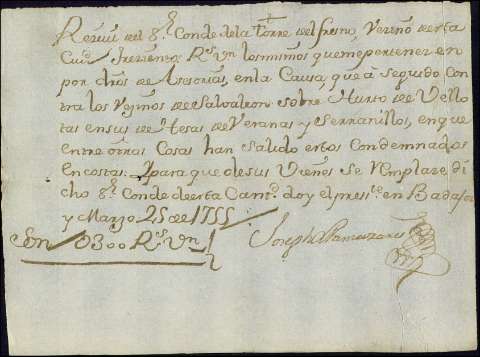 Reciui del Sr. Conde dela torre del fresno, Vezino desta
Ciud. Trezientos Rs. Vn. los mismos que me pertenecen
por dros de Asesorias, en la Causa, que à seguido con
tra los Vezinos de Salvaleon sobre Hurto de Vello
tas en sus dehesas de Veranas y Serranillos, en que
entre otras Cosas han salido estos Condemnados
en costas. Y para que de sus Vienes se remplaze di
cho Sr. Conde de esta Cantd. doy el preste. en Badajoz
y Marzo 25 de 1755
Son 0300 Rs. Vn. Joseph